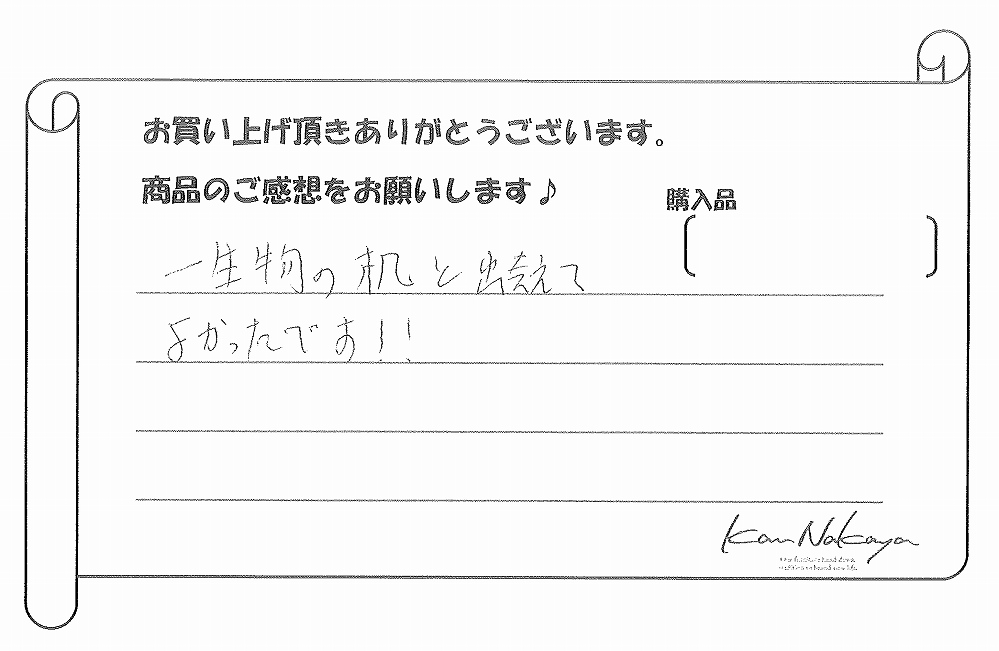 お買い上げ頂きありがとうございます。
商品のご感想をお願いします♪
購入品
一生物の机と出逢えて
よかったです!!
Kan Nakaya